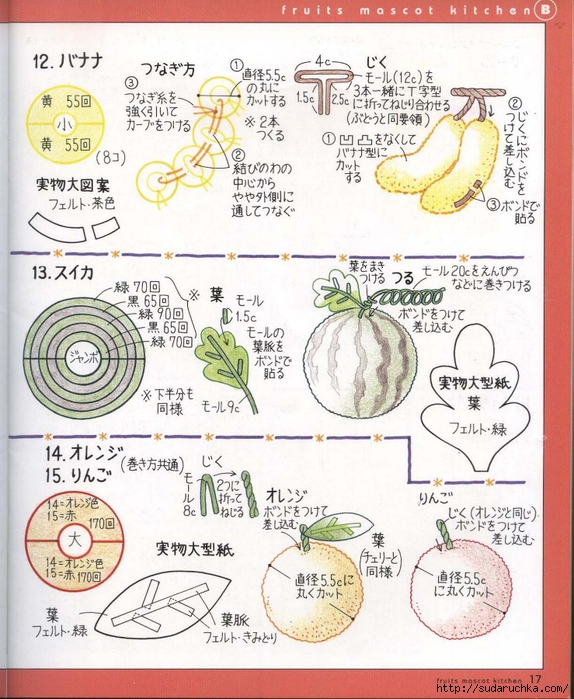 fruits mascot kitchen B
12. バナナ
黄 55回
小
黄 55回
(8コ)
つなぎ方
③
つなぎ糸を
強く引いて
カーブをつける
①
直径5.5c
の丸に
カットする
※2本
つくる
②
結びのわの
中心から
やや外側に
通してつなぐ
実物大図案
フェルト・茶色
4c
1.5c
2.5c
じく
モール(12c)を
3本一緒にT字型
に折ってねじり合わせる
(ぶどうと同要領)
①凹凸をなくして
バナナ型に
カット
する
②
じくにボンドを
つけて差し込む
③ボンドで
貼る
13. スイカ
緑70回
黒65回
緑90回
黒65回
緑70回
ジャンボ
※下半分も
同様
※
葉
モール
1.5c
モールの
葉脈を
ボンドで
貼る
モール9c
葉をまき
つける
つる
モール20cをえんぴつ
などに巻きつける
ボンドをつけて
差し込む
実物大型紙
葉
フェルト・緑
14. オレンジ
15. りんご
(巻き方共通)
14=オレンジ色
15=赤
170回
大
14=オレンジ色
15=赤 170回
じく
モール
8c
2つに
折って
ねじる
実物大型紙
葉
フェルト・緑
葉脈
フェルト・きみどり
オレンジ
ボンドをつけて
差し込む
葉
(チェリーと
同様)
直径5.5cに
丸くカット
りんご
じく(オレンジと同じ)
ボンドをつけて
差し込む
直径5.5c
に丸くカット
fruits mascot kitchen 17
http://sudaruchka.com/